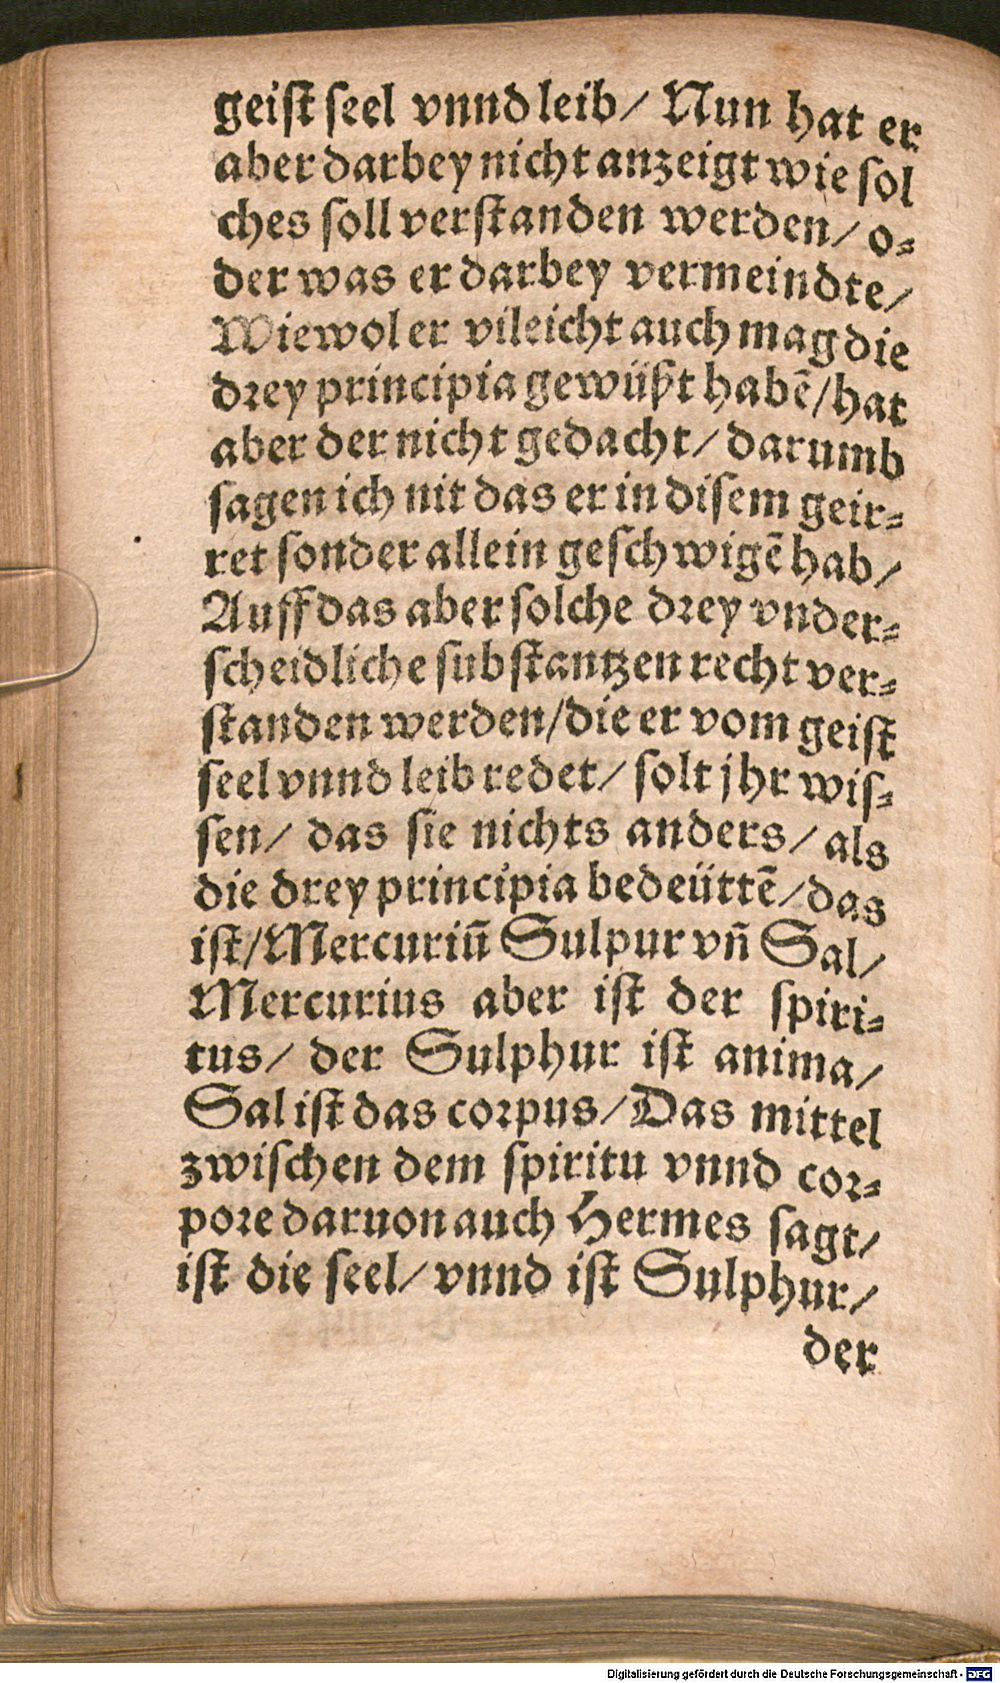 geist seel vnnd leib/ Nun hat er
aber darbey nicht anzeigt wie sol
ches soll verstanden werden/ o⸗
der was er darbey vermeindte/
Wiewol er vileicht auch mag die
drey principia gewüßt habē/ hat
aber der nicht gedacht/ darumb
sagen ich nit das er in disem geir⸗
ret sonder allein geschwigē hab/
Auff das aber solche drey vnder⸗
scheidliche substantzen recht ver⸗
standen werden/ die er vom geist
seel vnnd leib redet/ solt jhr wis⸗
sen/ das sie nichts anders/ als
die drey principia bedeüttē/ das
ist/ Mercuriū Sulpur vn̄ Sal/
Mercurius aber ist der spiri⸗
tus/ der Sulphur ist anima/
Sal ist das corpus/ Das mittel
zwischen dem spiritu vnnd cor⸗
pore daruon auch Hermes sagt/
ist die seel/ vnnd ist Sulphur/
der
Digitalisierung gefördert durch die Deutsche Forschungsgemeinschaft - DFG